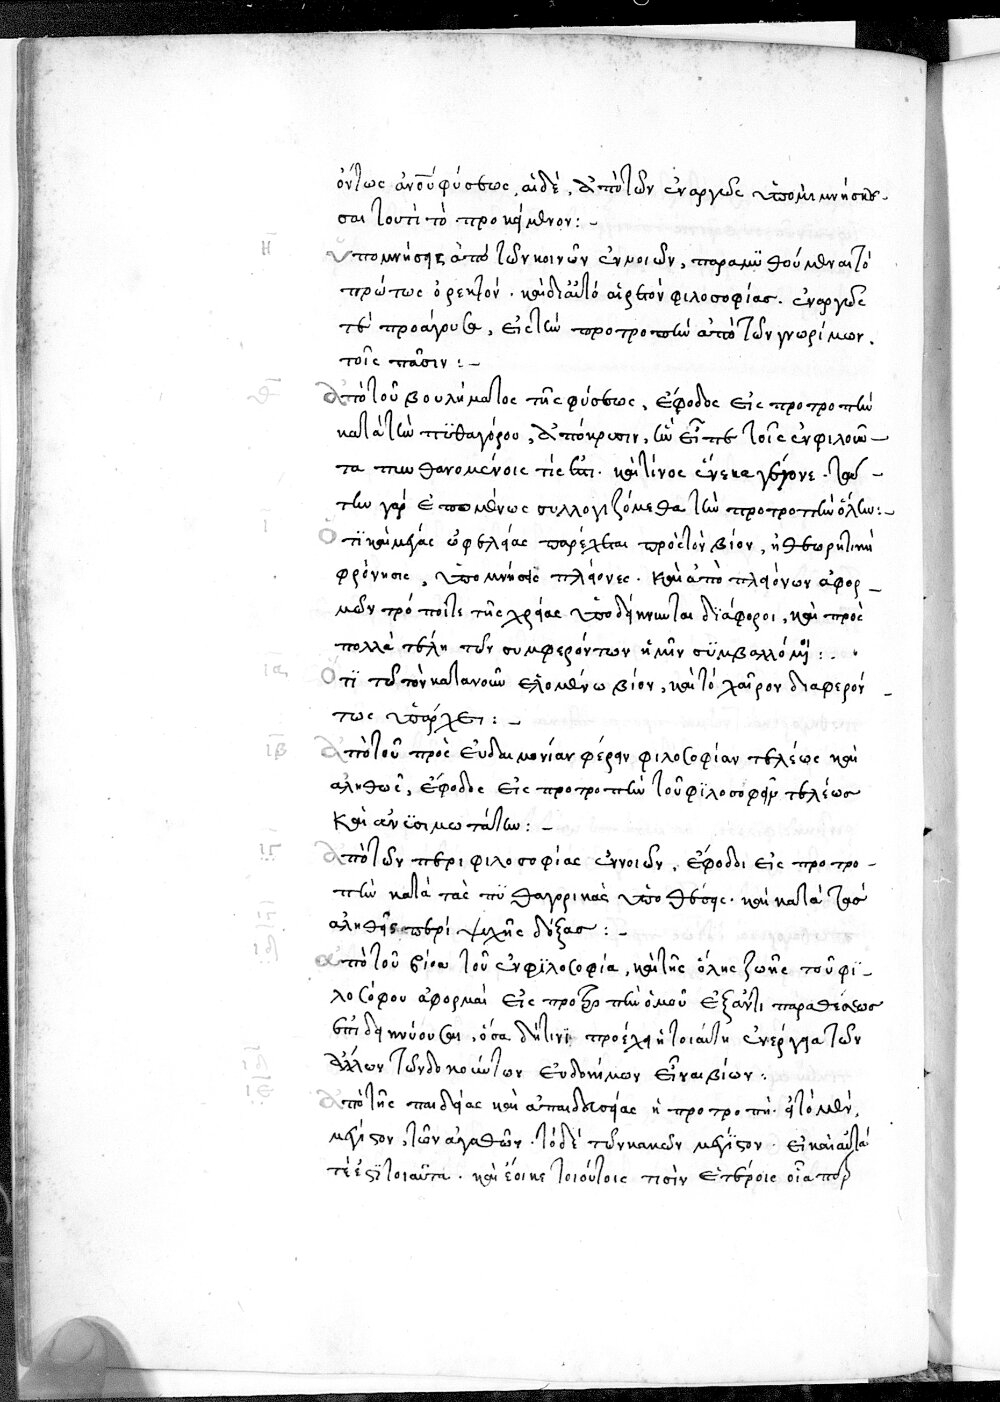 ὄντως ἀν οὐ φύσεως, αἱ δὲ, ἀπὸ τῶν ἐναργῶς ὑπομιμνήσκου-
σαι τουτὶ τὸ προκείμενον:-
η Ὑπομνήσεις ἀπὸ τῶν κοινῶν ἐννοιῶν, παραμϋθούμεναι τὸ
πρώτως ὀρεκτόν. καὶ δι' αὐτὸ αἱρετὸν φιλοσοφίας. ἐναργῶς
τε προάγουσαι, εἰς τὴν προτροπὴν ἀπὸ τῶν γνωρίμων.
τοῖς πᾶσιν:-
θ Ἀπὸ τοῦ βουλήματος τῆς φύσεως, ἔφοδος εἰς προτροπὴν
κατὰ τὴν πϋθαγόρου, ἀπόκρισιν, ἣν εἶπε τοῖς ἐν φιλοῦν-
τα πυνθανομένοις τίς ἐστι. καὶ τίνος ἕνεκα γέγονε. ταύ-
την γὰρ ἑπομένως συλλογιζόμεθα τὴν προτροπὴν ὅλην:-
ι Ὅτι καὶ μεγάλας ὠφελείας παρέχεται πρὸς τὸν βίον, ἡ θεωρητικὴ
φρόνησις, ὑπομνήσεις πλείονες. καὶ ἀπὸ πλειόνων ἀφορ-
μῶν τρόποί τε τῆς χρείας ὑποδείκνυνται διάφοροι, καὶ πρὸς
πολλὰ τέλη τῶν συμφερόντων ἡμῖν σϋμβαλλόμενοι:-
ια Ὅτι τῷ τὸν κατανοῦν ἑλομένῳ βίον, καὶ τὸ χαῖρον διαφερόν-
τως ὑπάρχει:-
ιβ Ἀπὸ τοῦ πρὸς εὐδαιμονίαν φέρειν φιλοσοφίαν τελέως καὶ
ἀληθῶς, ἔφοδος εἰς προτροπὴν τοῦ φϊλοσοφεῖν τελέως
καὶ ἀνϋσιμωτάτην:-
ιγ Ἀπὸ τῶν περὶ φιλοσοφίας ἐννοιῶν, ἔφοδοι εἰς προτρο-
πὴν κατὰ τὰς πϋθαγορικὰς ὑποθέσεις. καὶ κατὰ τὰς
ἀληθεῖς περὶ ψυχῆς δόξας:-
ιδ Ἀπὸ τοῦ βίου τοῦ ἐν φϊλοσοφία, καὶ τῆς ὅλης ζωῆς τοῦ φϊ-
λοσόφου ἀφορμαὶ εἰς προτροπὴν ὁμοῦ ἐξ ἀντιπαραθέσεως
ἐπιδεικνύουσαι, ὅσα δήτινι προέχει ἡ τοιαύτη ἐνέργεια τῶν
ἄλλων τῶν δοκούντων εὐδοκίμων εἶναι βίων:
ιε Ἀπὸ τῆς παιδείας καὶ ἀπαιδευσίας ἡ προτροπή. ᾗ τὸ μὲν,
μέγιστον, τῶν ἀγαθῶν. τὸ δὲ τῶν κακῶν μέγϊστον. εἰκαὶ αὐτά
τέ ἐστι τοιαῦτα. καὶ ἔοικε τοιούτοις τισὶν ἑτέροις οἷα περ